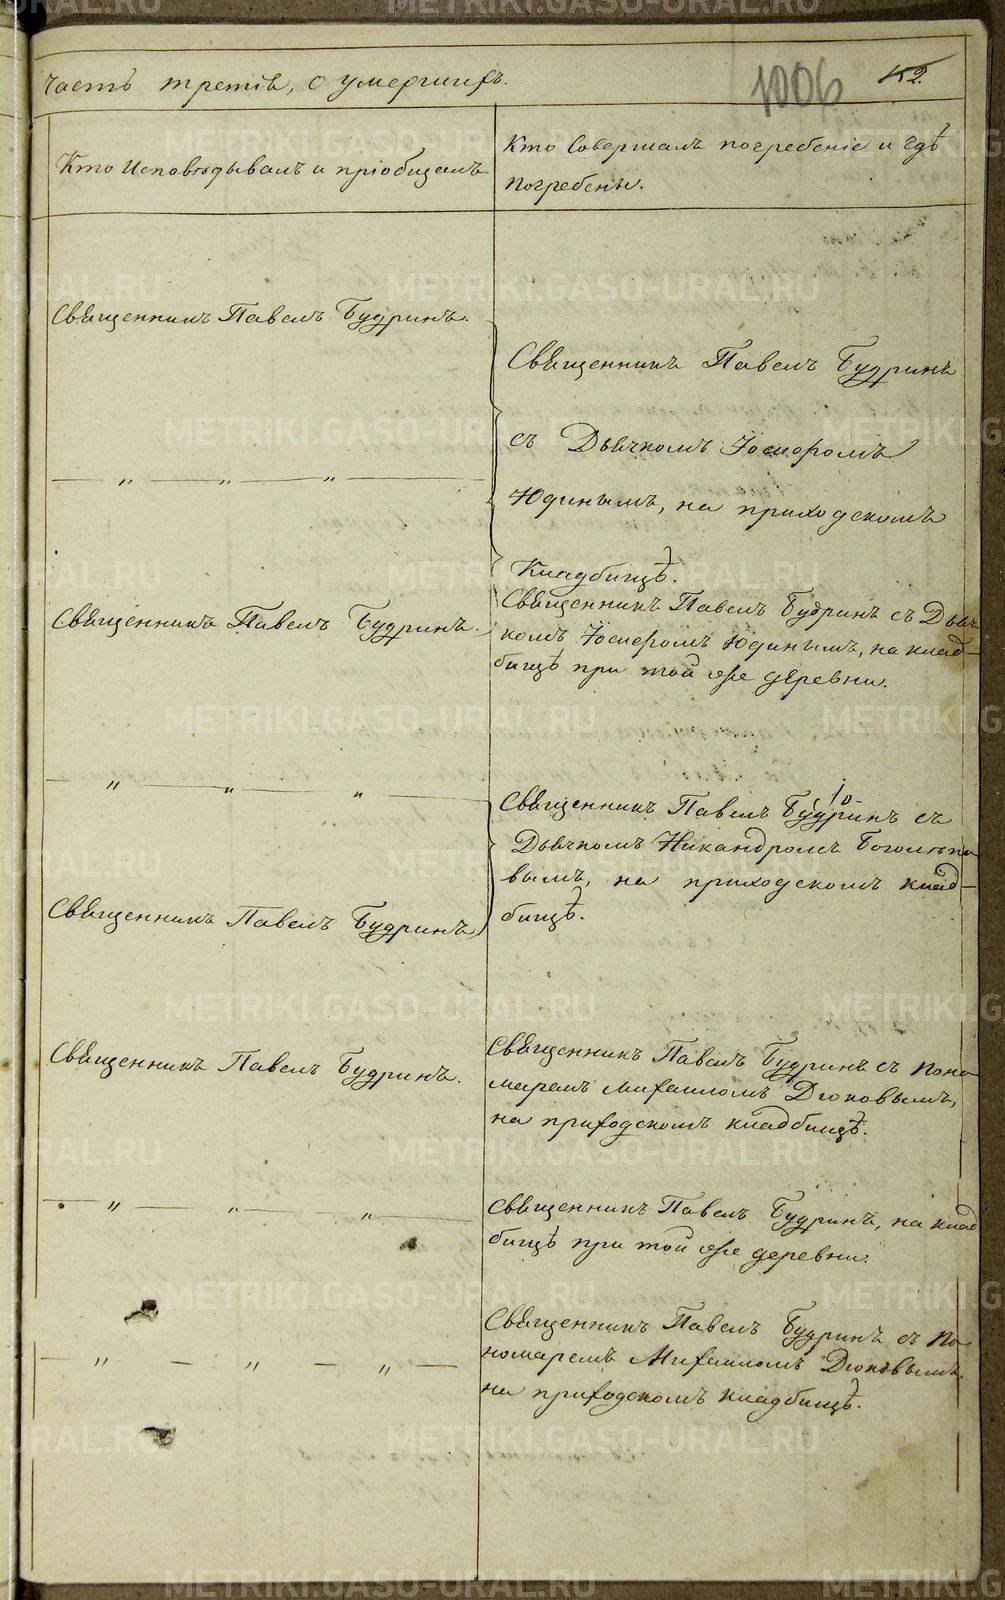 Часть третія, о умершихъ.
1006
152.
Кто Исповѣдывалъ и пріобщалъ
Кто Совершалъ погребеніе и гдѣ
погребены.
Священникъ Павелъ Будринъ.
Священникъ Павелъ Будринъ
съ Дьячкомъ Іосифомъ
— „ — „ — „ —
Юдинымъ, на приходскомъ
Кладбищѣ.
Священникъ Павелъ Будринъ.
Священникъ Павелъ Будринъ съ Дьяч
комъ Іосифомъ Юдинымъ, на клад-
бищѣ при той же деревни.
— „ — „ — „ —
Священникъ Павелъ Будринъ съ
Дьячкомъ Никандромъ Боголѣпо
вымъ, на приходскомъ клад-
бищѣ.
Священникъ Павелъ Будринъ
Священникъ Павелъ Будринъ.
Священникъ Павелъ Будринъ съ Поно
маремъ Михаиломъ Дюковымъ,
на приходскомъ кладбищѣ.
— „ — „ — „ —
Священникъ Павелъ Будринъ, на клад
бищѣ при той же деревни.
— „ — „ — „ —
Священникъ Павелъ Будринъ съ По
номаремъ Михаиломъ Дюковымъ,
на приходскомъ кладбищѣ.
METRIKI.GASO-URAL.RU